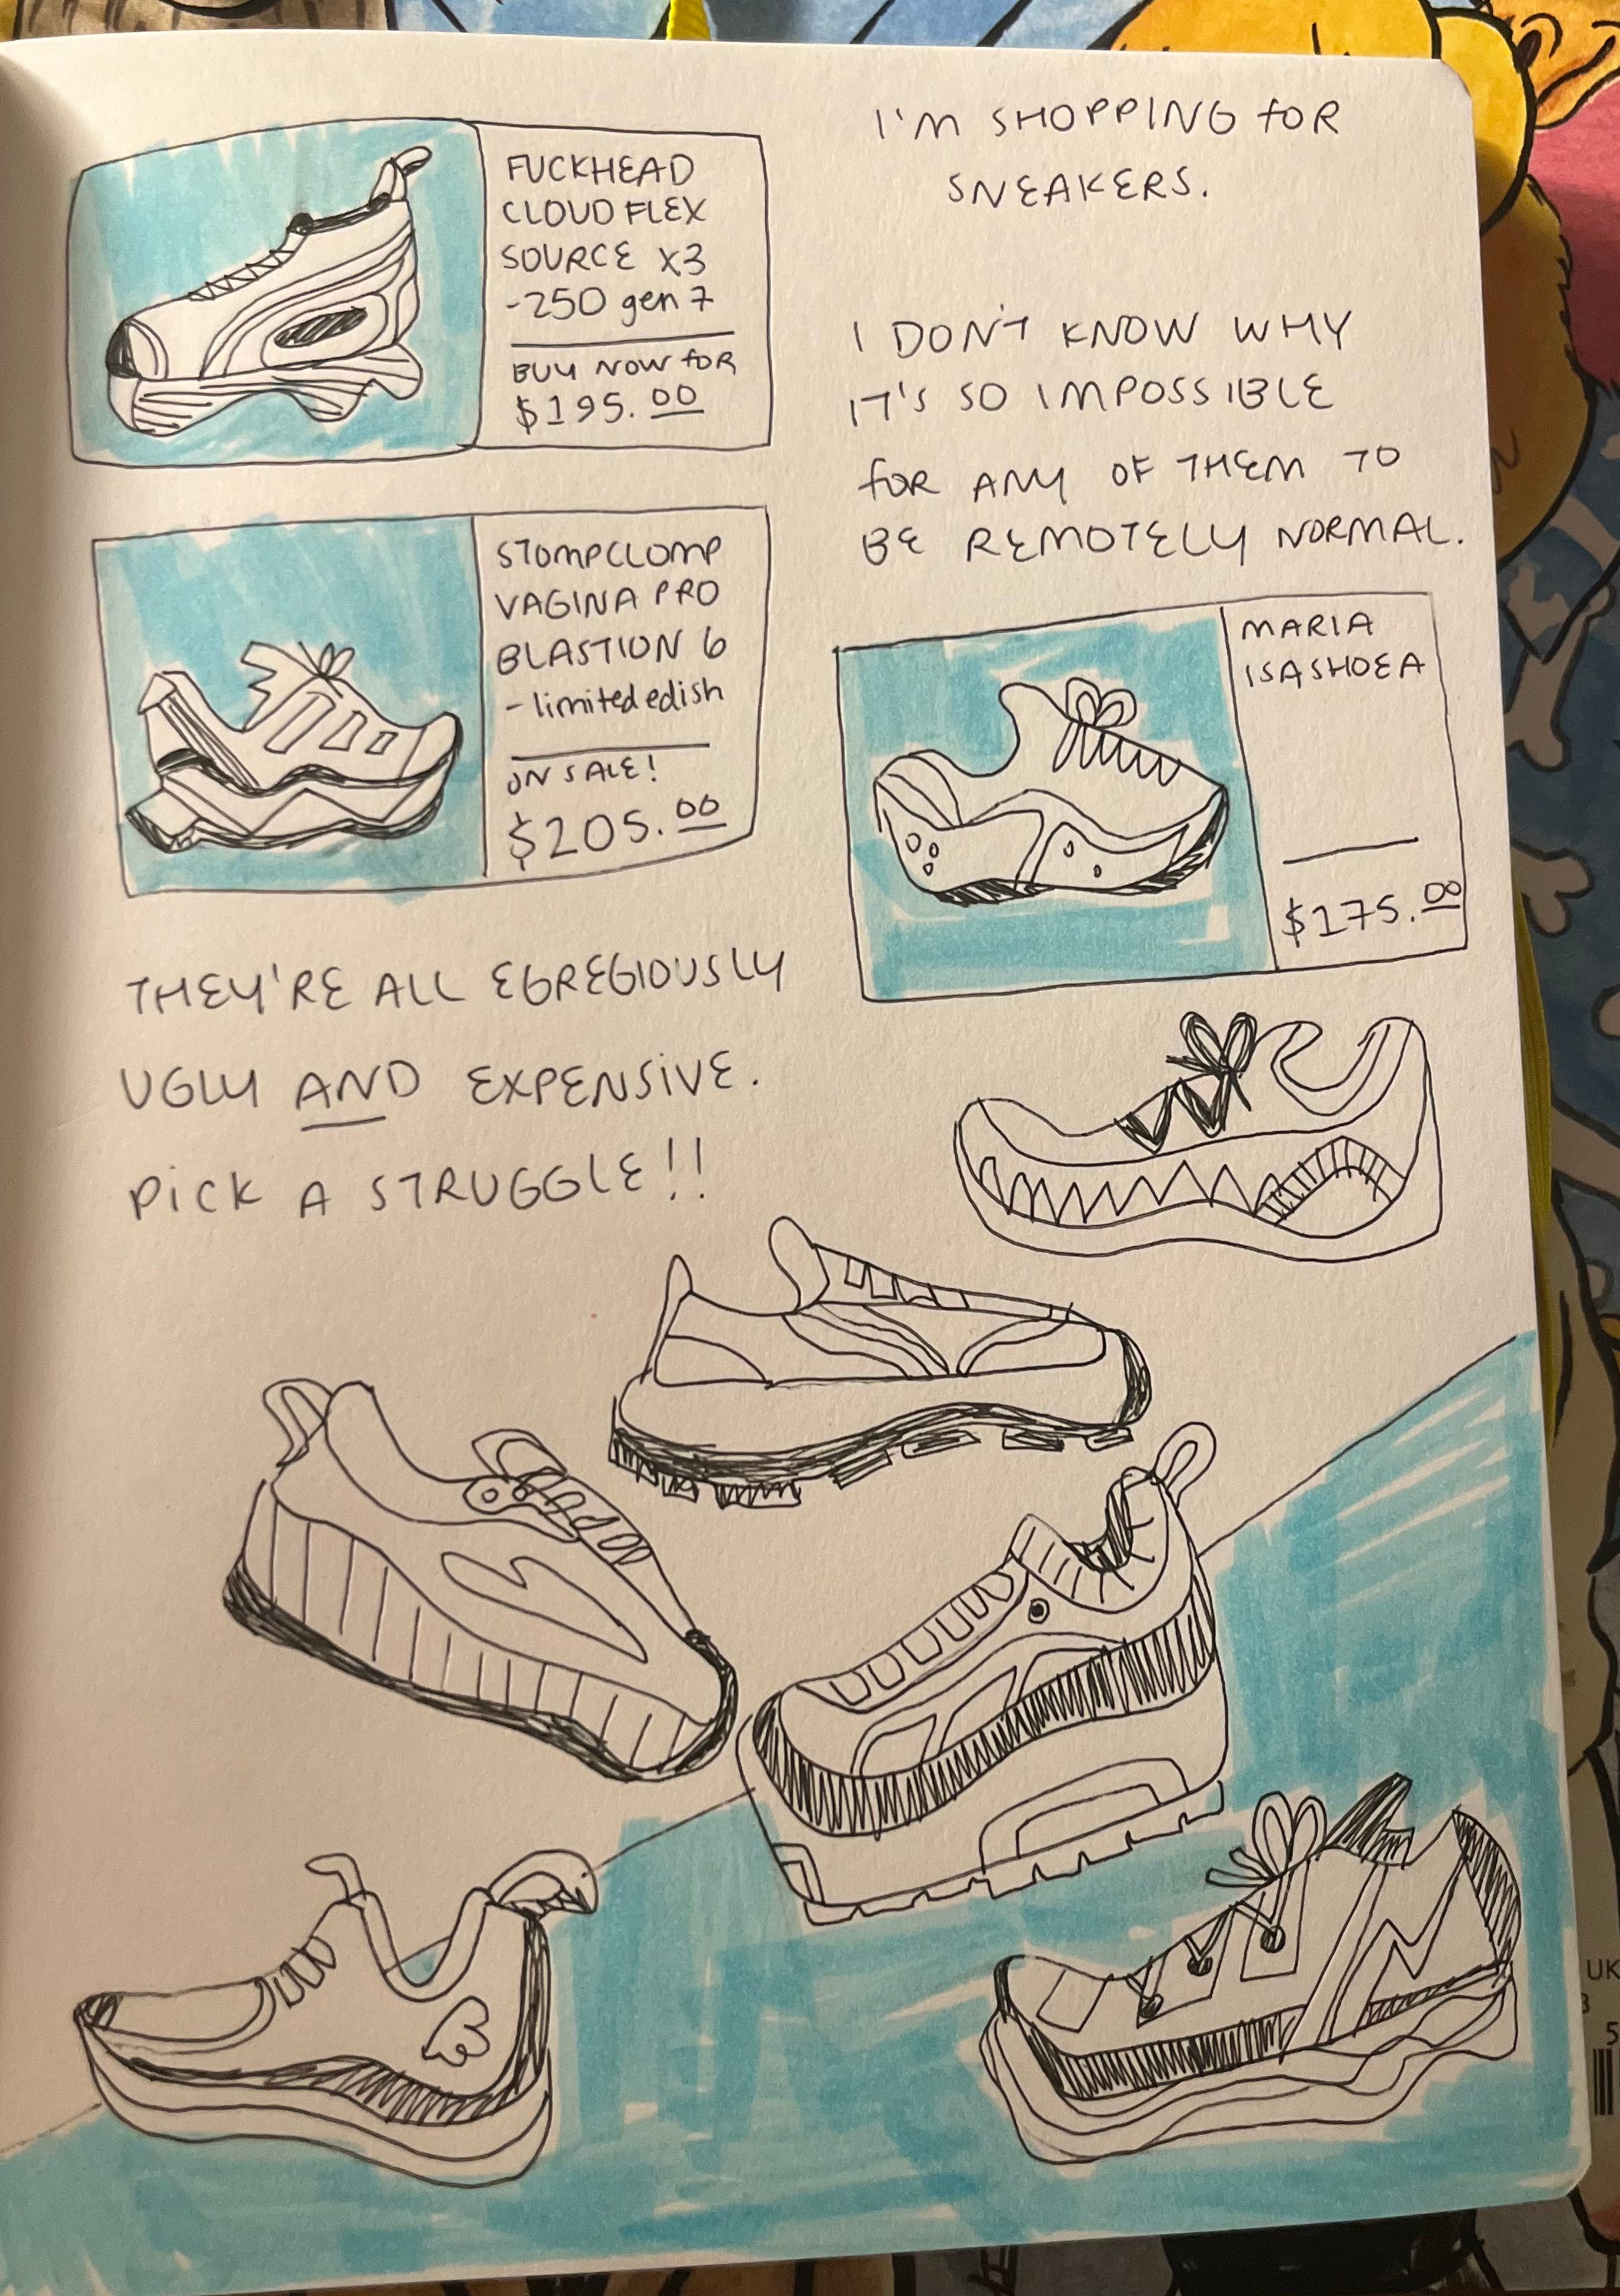 I'M SHOPPING FOR
SNEAKERS.
FUCKHEAD
CLOUD FLEX
SOURCE X3
-250 gen 7
BUY NOW FOR
$195.00
I DON'T KNOW WHY
IT'S SO IMPOSSIBLE
FOR ANY OF THEM TO
BE REMOTELY NORMAL.
STOMPCLOMP
VAGINA PRO
BLASTION 6
- limited edish
ON SALE!
$205.00
MARIA
ISASHOEA
$175.00
THEY'RE ALL EGREGIOUSLY
UGLY AND EXPENSIVE.
PICK A STRUGGLE!!
UK
3
5